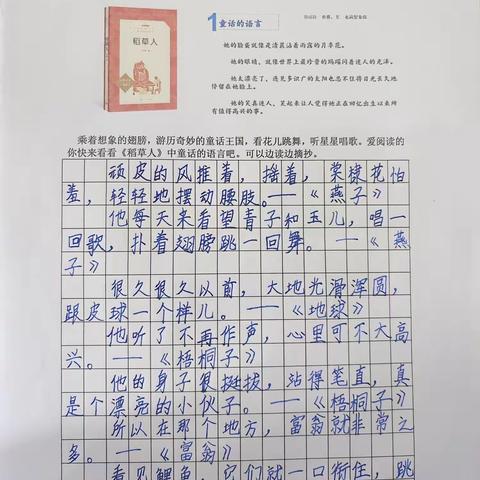 稻草人
1童话的语言
她的脸蛋就像是清晨沾着雨露的月季花。
她的眼睛，就像世界上最珍贵的玛瑙闪着迷人的光泽。
她太漂亮了，连见多识广的太阳也忍不住将目光长久地
停留在她脸上。
她的笑真迷人，笑起来让人觉得她正在回忆出生以来所
有值得高兴的事。
乘着想象的翅膀，游历奇妙的童话王国，看花儿跳舞，听星星唱歌。爱阅读的
你快来看看《稻草人》中童话的语言吧。可以边读边摘抄。
顽皮的风推着，摇着，棠棣花怕
羞，轻轻地摆动腰肢。——《燕子》
他每天来看望青子和玉儿，唱一
回歌，扑着翅膀跳一回舞。——《燕
子》
很久很久以前，大地光滑浑圆，
跟皮球一个样儿。——《地球》
他听了不再作声，心里可不大高
兴。——《梧桐子》
他的身子很挺拔，站得笔直，真
是个漂亮的小伙子。——《梧桐子》
所以在那个地方，富翁就非常之
多。——《富翁》
看见鲤鱼，它们就一口衔住，跳